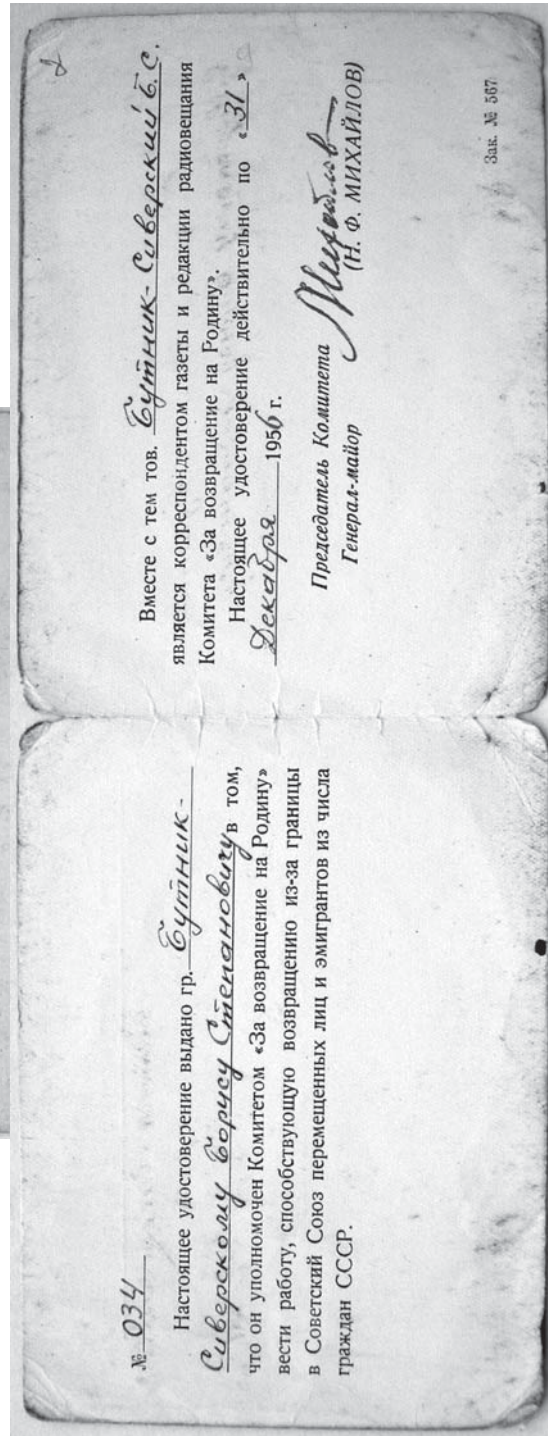 № 034
Настоящее удостоверение выдано гр. Бутник-
Сиверскому Борису Степановичу в том,
что он уполномочен Комитетом «За возвращение на Родину»
вести работу, способствующую возвращению из-за границы
в Советский Союз перемещенных лиц и эмигрантов из числа
граждан СССР.
Вместе с тем тов. Бутник-Сиверский Б.С.
является корреспондентом газеты и редакции радиовещания
Комитета «За возвращение на Родину».
Настоящее удостоверение действительно по «31»
Декабря 1956 г.
Председатель Комитета
Генерал-майор
(Н. Ф. МИХАЙЛОВ)
Зак. № 567